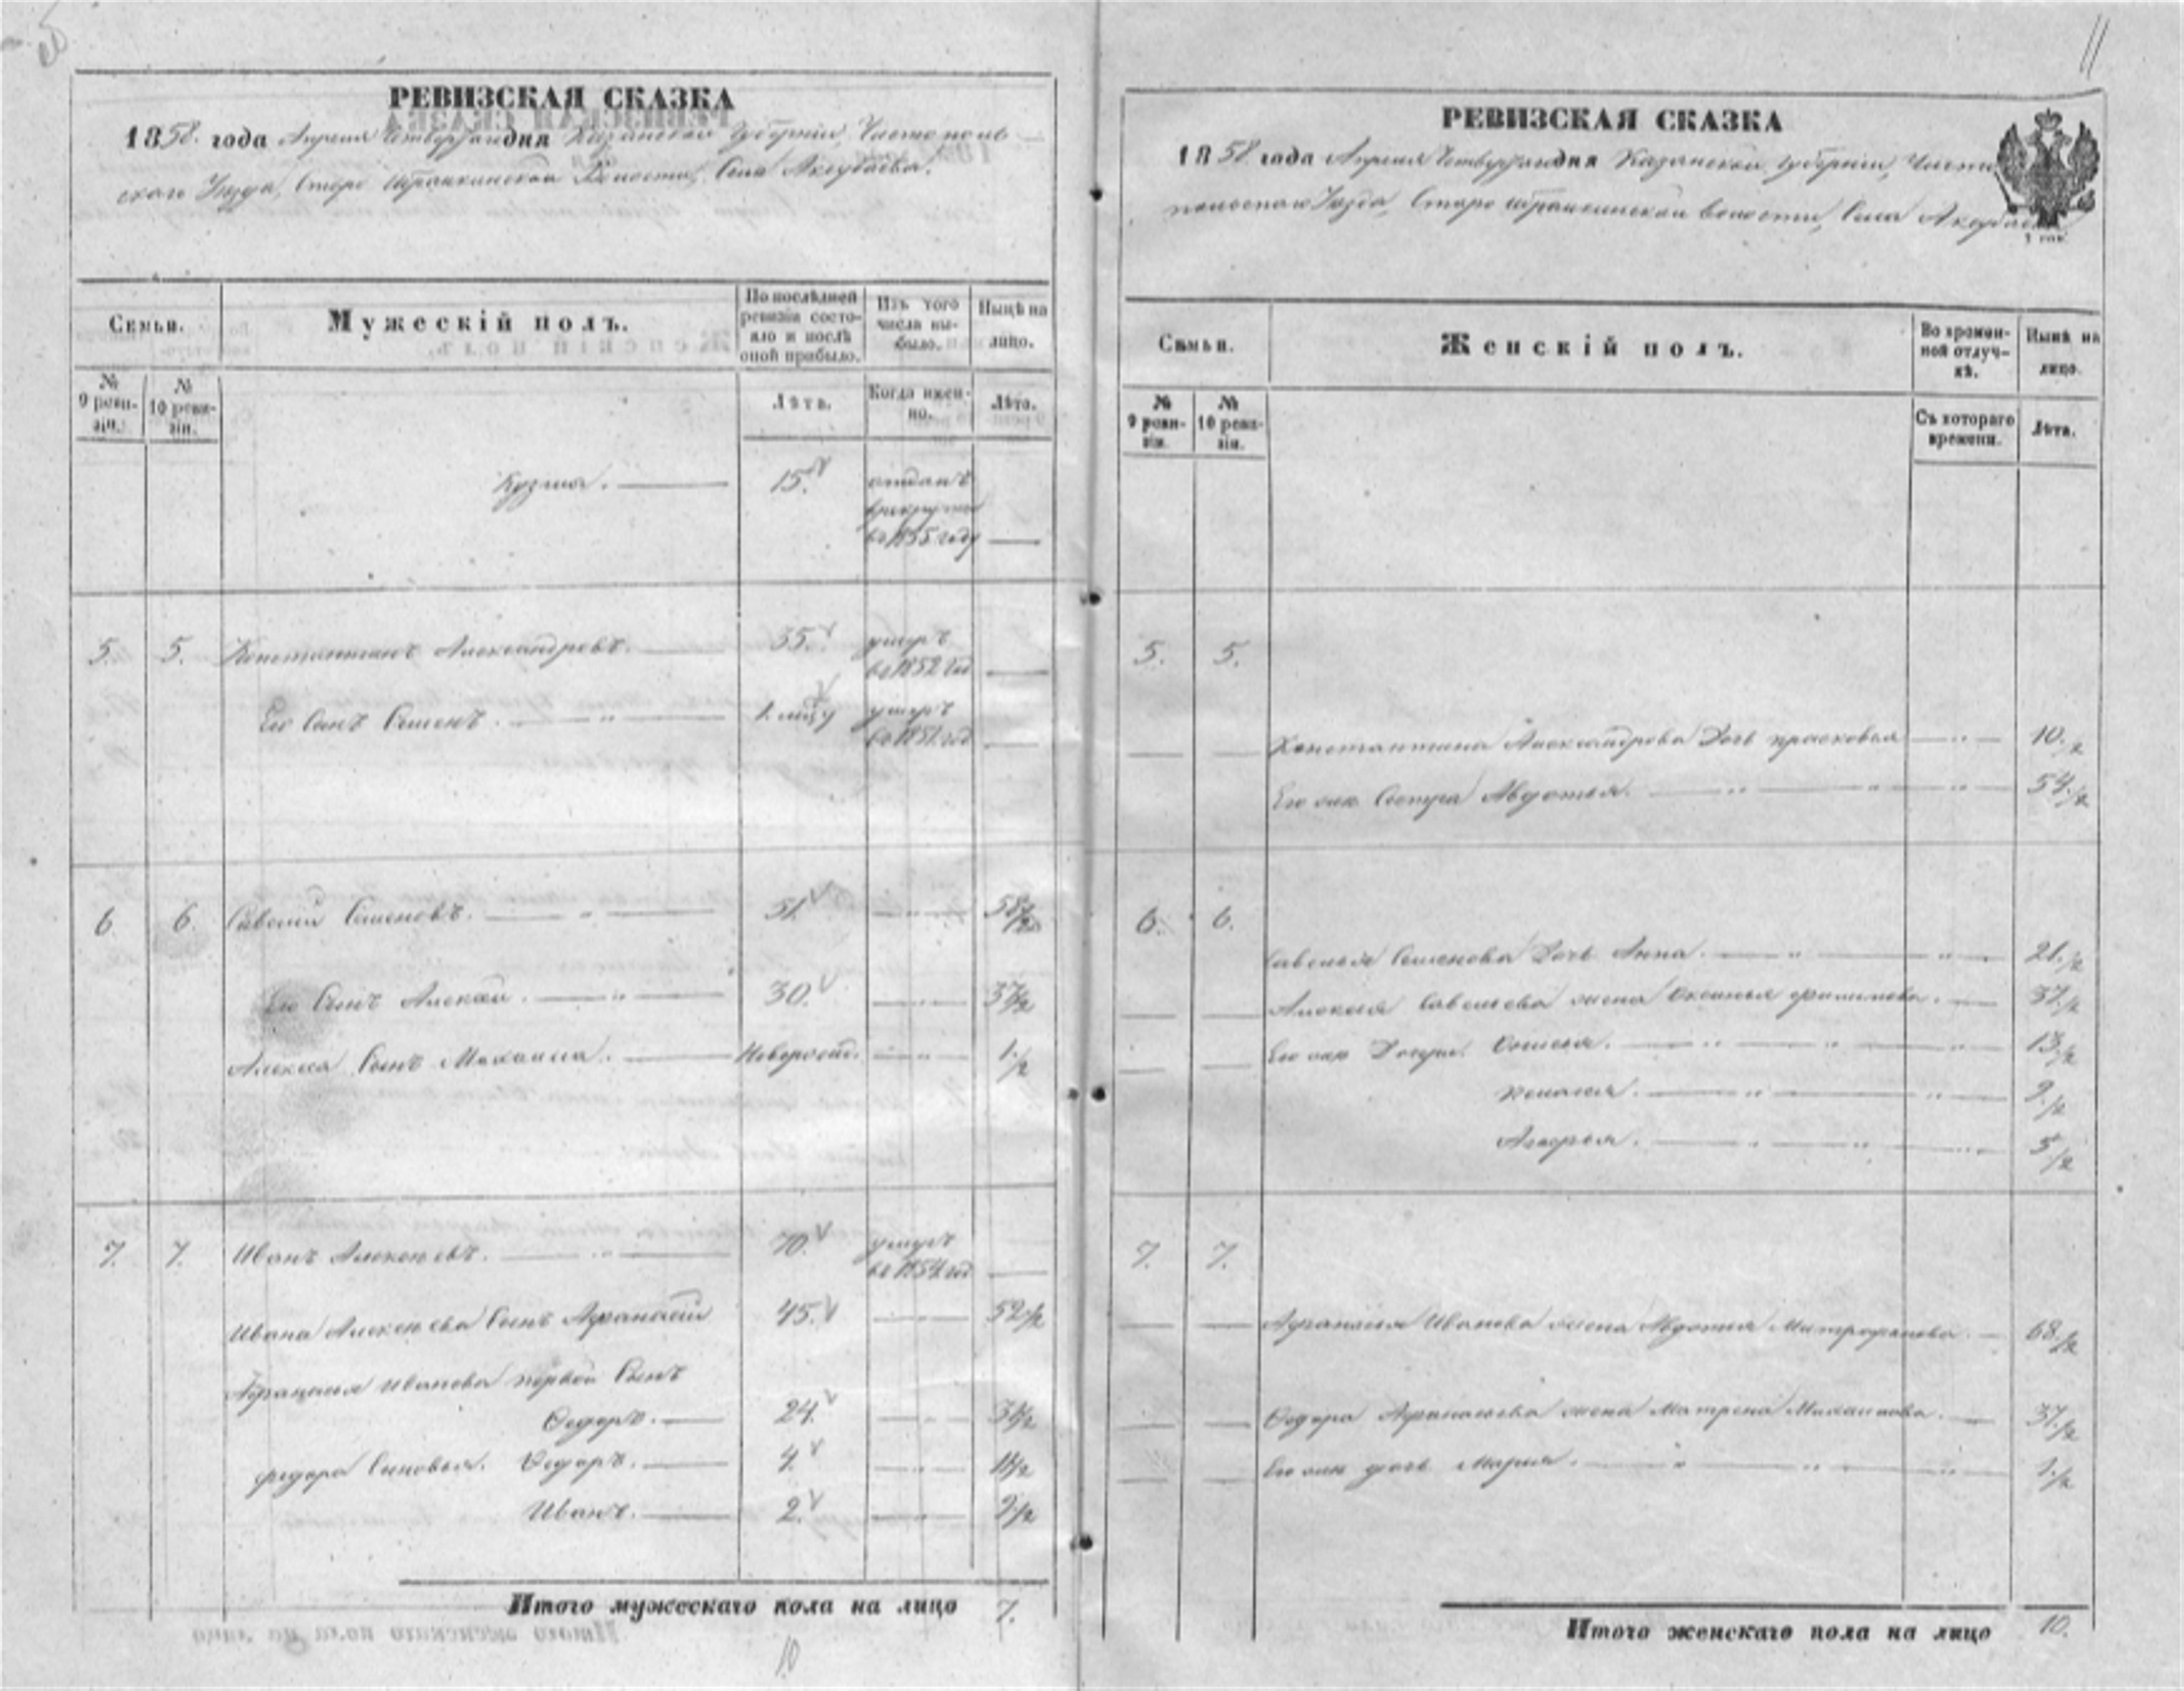 11
РЕВИЗСКАЯ СКАЗКА
1858. года Апреля Четвертаго дня Казанской Губернiи, Чистополь-
скаго Уезда, Старо Волости, Села Аксубаева.
Семьи.
Мужескій полъ.
По послѣдней ревизіи состо-яло и послѣ оной прибыло.
Изъ того числа вы-было.
Нынѣ на лицо.
№ 9 реви-зіи.
№ 10 реви-зіи.
Лѣта.
Когда имен-но.
Лѣта.
Кузма. 15. отданъ
в рекруты
въ 1855 году
5. 5. Константинъ Александровъ. 35. умеръ
въ 1852 год
Его Сынъ Семенъ. 1. умеръ
въ 1851 год
6 6. Савелий Семеновъ. 51. 58 1/2
Его Сынъ Алексей. 30. 37 1/2
Алексея Сынъ Михаила. Новорожд. 1. 1/2
7. 7. Иванъ Алексеевъ. 70. умеръ
въ 1854 год
Ивана Алексеева Сынъ Афанасий 45. 52 1/2
Афанасия Иванова первой Сынъ
Федоръ. 24. 31 1/2
Федора Сыновья. Федоръ. 4. 11 1/2
Иванъ. 2. 9 1/2
Итого мужескаго пола на лицо 7.
10
РЕВИЗСКАЯ СКАЗКА
1858. года Апреля Четвертаго дня Казанской Губернiи, Чисто
польскаго Уезда, Старо волости, Села Аксубаева
Семьи.
Женскій полъ.
Во времен-ной отлуч-кѣ.
Нынѣ на лицо.
№ 9 реви-зіи.
№ 10 реви-зіи.
Съ котораго времени.
Лѣта.
5. 5.
Константина Александрова Дочь Прасковья 10. 1/2
Его же Сестра Авдотья. 54. 1/2
6. 6.
Савелья Семенова Дочь Анна. 21. 1/2
Алексея Савельева жена Филипова. 37. 1/2
Его же Дочери. 13. 1/2
9. 1/2
5 1/2
7. 7.
Афанасия Иванова жена Авдотья Митрофанова. 68. 1/2
Федора Афанасьева жена Матрена Михайлова. 31. 1/2
Его же дочь Мария. 1. 1/2
Итого женскаго пола на лицо 10.